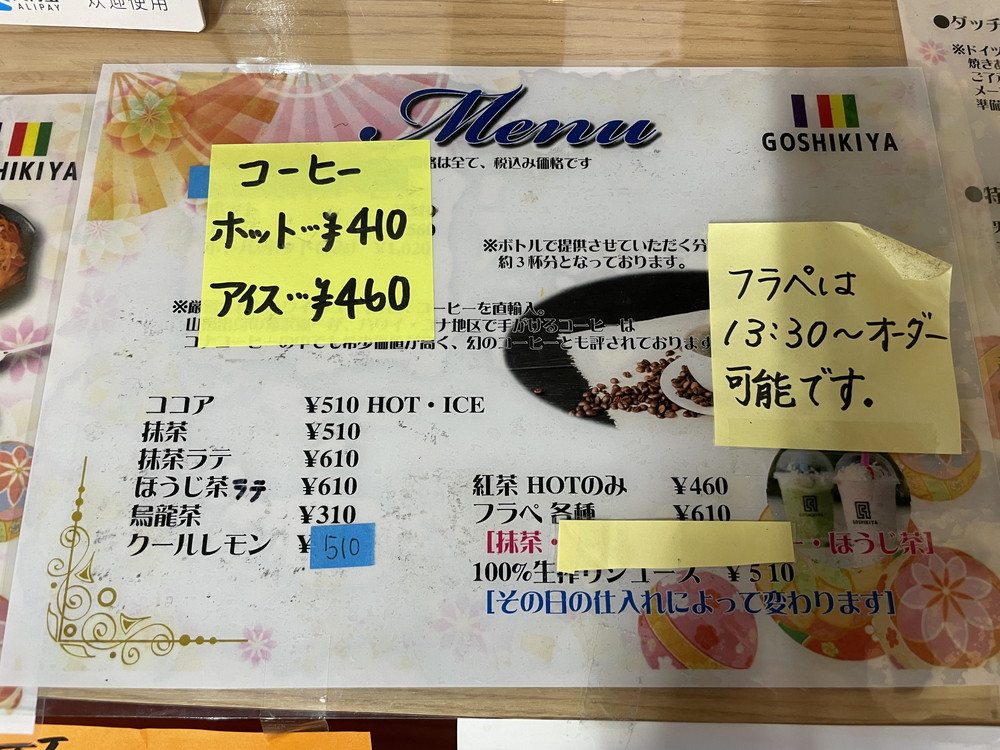 ALIPAY
欢迎使用
HIKIYA
Menu
GOSHIKIYA
は全て、税込み価格です
コーヒー
ホット…¥410
アイス…¥460
※ボトルで提供させていただく分
約3杯分となっております。
フラペは
13:30～オーダー
可能です。
コーヒーを直輸入。
地区で手がけるコーヒーは
価値が高く、幻のコーヒーとも評されております
ココア ¥510 HOT・ICE
抹茶 ¥510
抹茶ラテ ¥610
ほうじ茶ラテ ¥610
烏龍茶 ¥310
クールレモン ¥510
紅茶 HOTのみ ¥460
フラペ 各種 ¥610
[抹茶・ ・ほうじ茶]
100%生搾りジュース ¥510
[その日の仕入れによって変わります]
GOSHIKIYA
●ダッチ
※ドイツ
焼きあ
メー
準備
●特